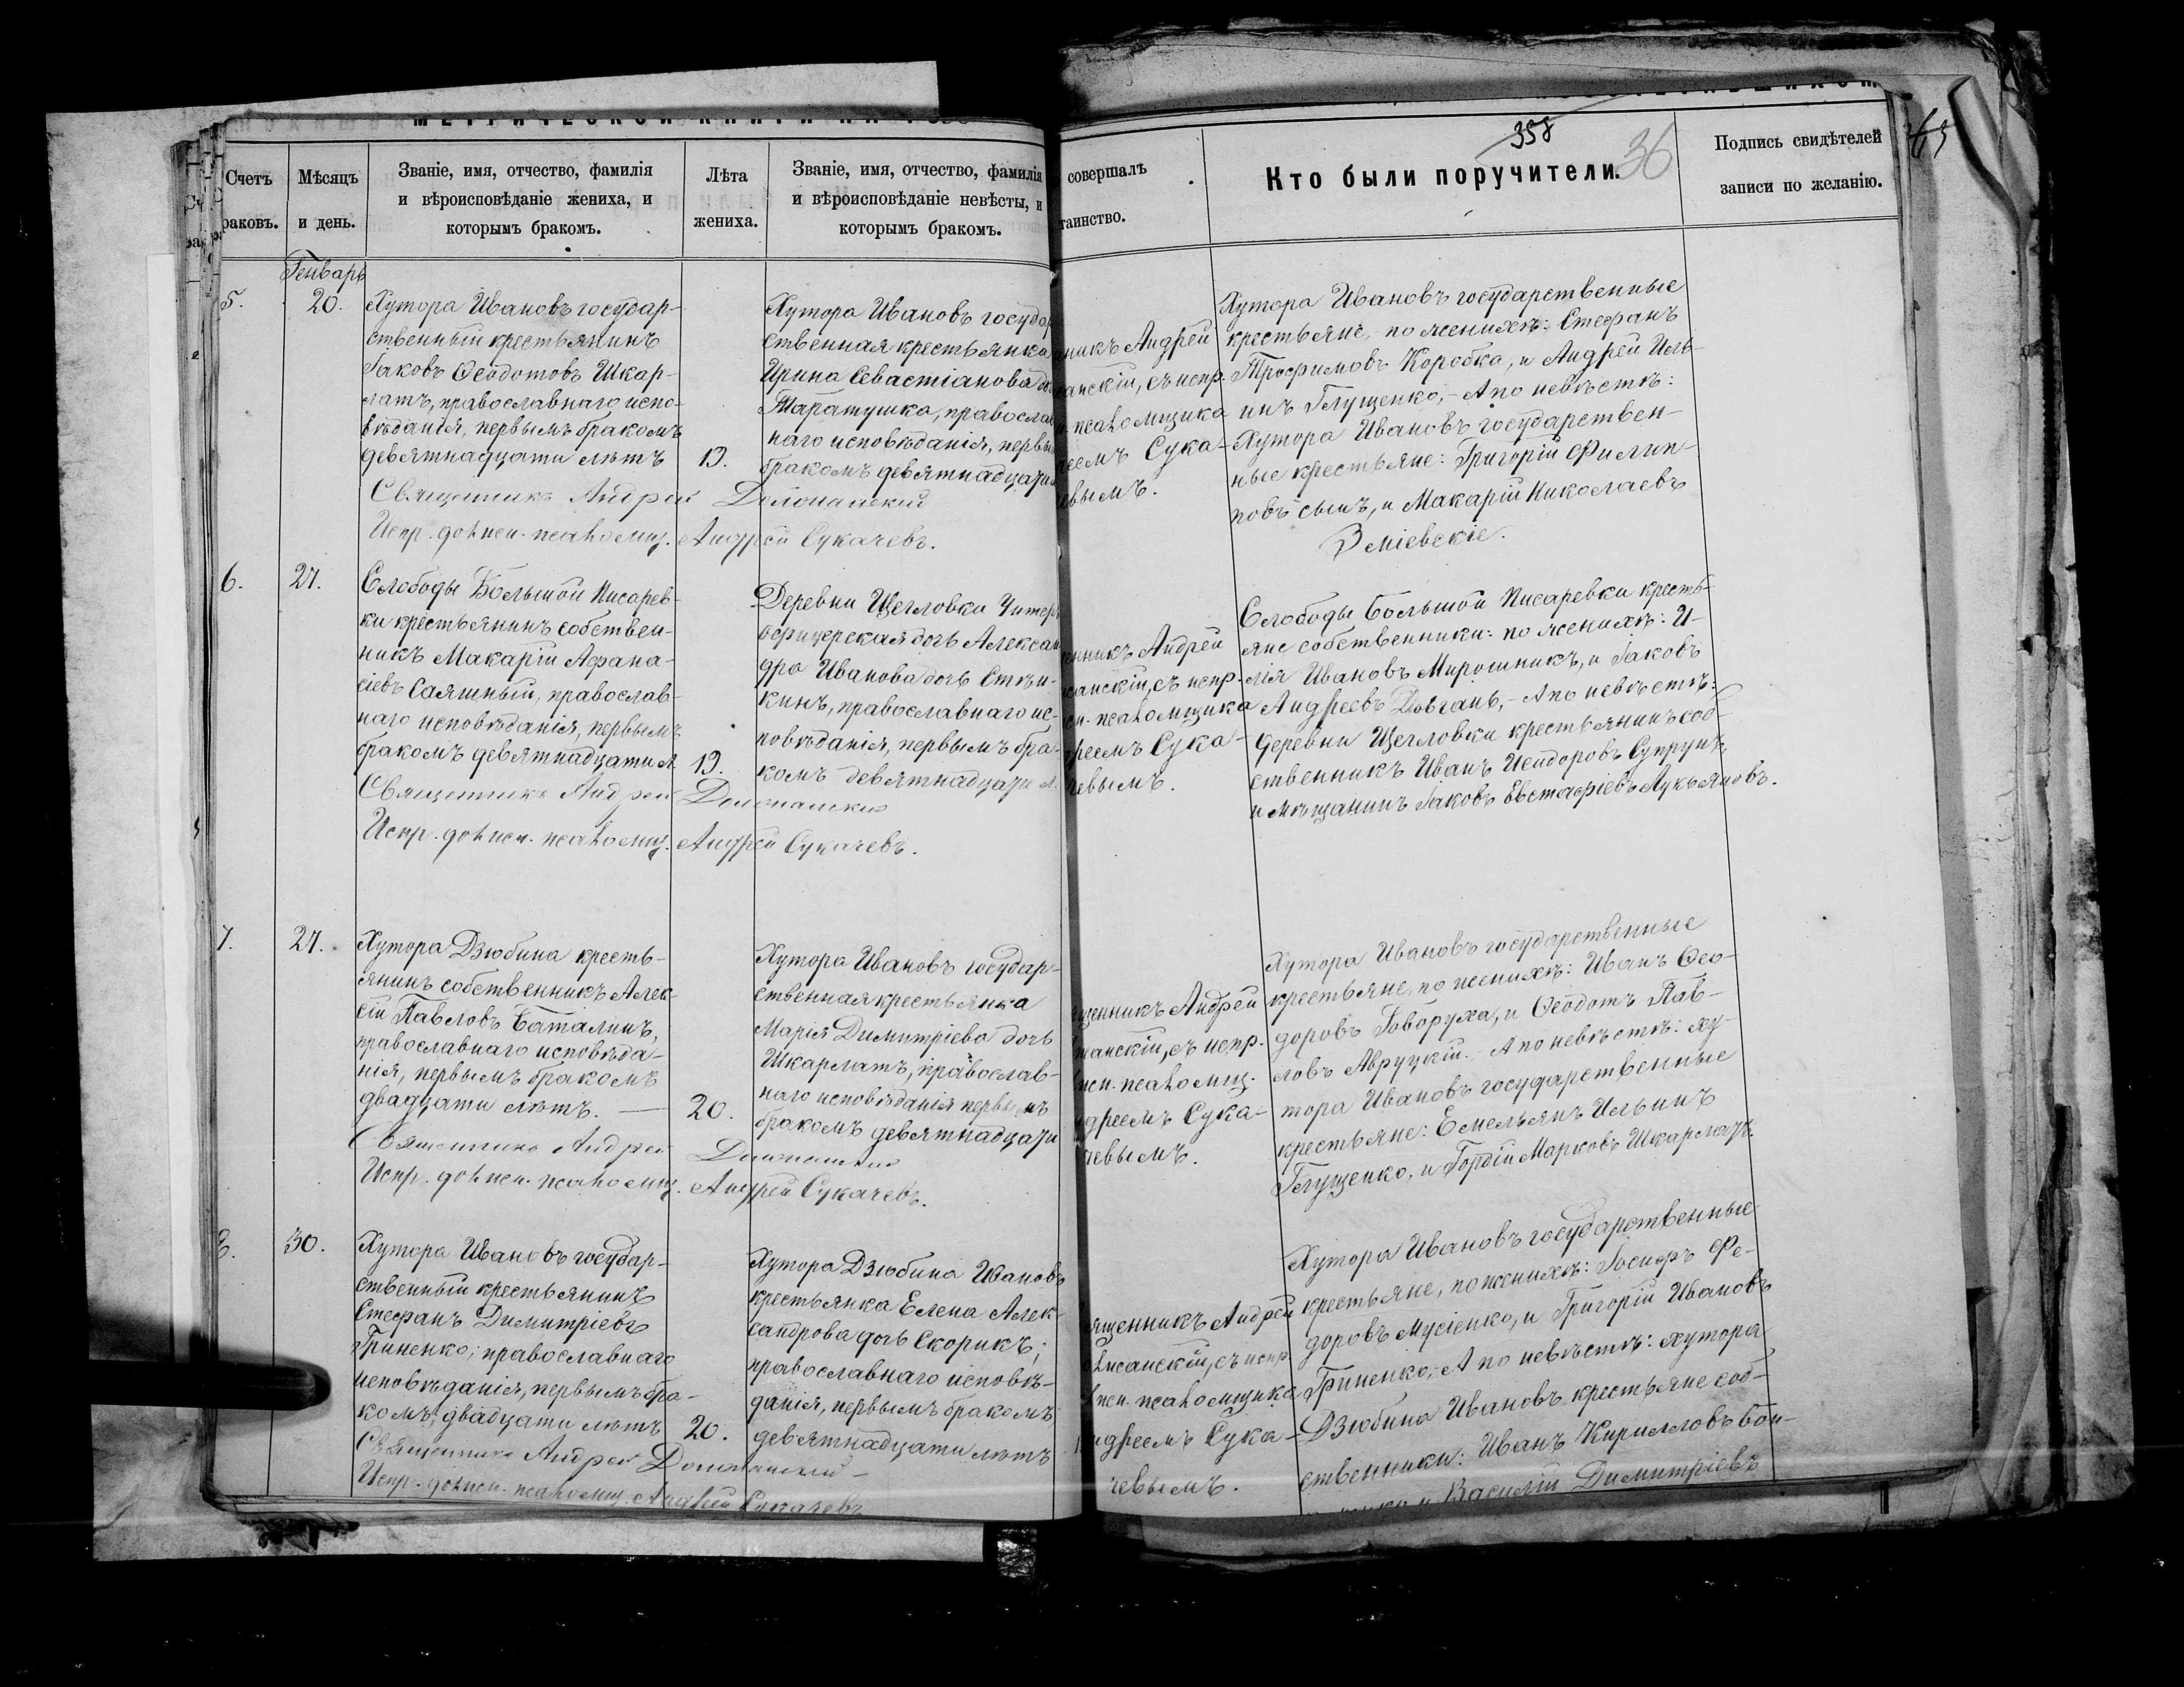 358
36
Счетъ
раковъ.
Мѣсяцъ
и день.
Званіе, имя, отчество, фамилія
и вѣроисповѣданіе жениха, и
которымъ бракомъ.
Лѣта
жениха.
Званіе, имя, отчество, фамилія
и вѣроисповѣданіе невѣсты, и
которымъ бракомъ.
совершалъ
таинство.
Кто были поручители.
Подпись свидѣтелей
записи по желанію.
Генварь
5.
20.
Хутора Ивановъ государ-
ственный крестьянинъ
Іаковъ Ѳеодотовъ Шкар-
латъ, православнаго испо-
вѣданія, первымъ бракомъ
девятнадцати лѣтъ
19.
Хутора Ивановъ государ
ственная крестьянка
Ирина Севастіанова до
Таратушка, православ
наго исповѣданія, первы
бракомъ девятнадцати
никъ Андрей
анскій, съ испр.
псаломщика
еемъ Сука-
евымъ.
Хутора Ивановъ государственные
крестьяне, по женихѣ: Стефанъ
Трофимовъ Коробка, и Андрей Иль-
инъ Глущенко, - А по невѣстѣ:
Хутора Ивановъ государствен-
ные крестьяне: Григорій Филип-
повъ сынъ, и Макарій Николаевъ
Зміевскіе.
Священникъ Андрей
Испр. долж. псаломщ. Андрей Сукачевъ.
6.
27.
Слободы Большой Писарев-
ки крестьянинъ собствен-
никъ Макарій Афана-
сіевъ Саяшный, православ-
наго исповѣданія, первымъ
бракомъ девятнадцати л
19.
Деревни Щегловки Унтеръ
офицерская дочь Алексан-
дра Иванова дочь Стѣн-
кинъ, православнаго ис-
повѣданія, первымъ бра-
комъ девятнадцати л.
енникъ Андрей
санскій, съ испр.
сп. псаломщика
реемъ Сука-
чевымъ.
Слободы Большой Писаревки кресть-
яне собственники: по женихѣ: И-
лія Ивановъ Мирошникъ, и Іаковъ
Андреевъ Довгань, - А по невѣстѣ:
деревни Щегловки крестьянинъ соб-
ственникъ Иванъ Исидоровъ Супрунъ,
и мѣщанинъ Іаковъ Евстафіевъ Лукьяновъ.
Священникъ Андрей
Испр. долж. псаломщ. Андрей Сукачевъ.
7.
27.
Хутора Дзюбина кресть-
янинъ собственникъ Алек-
сій Павловъ Баталинъ,
православнаго исповѣда-
нія, первымъ бракомъ
двадцати лѣтъ. —
20.
Хутора Ивановъ государ-
ственная крестьянка
Марія Димитріева дочь
Шкарлатъ, православ-
наго исповѣданія первымъ
бракомъ девятнадцати
щенникъ Андрей
санскій, съ испр.
исп. псаломщ.
ндреемъ Сука-
чевымъ.
Хутора Ивановъ государственные
крестьяне, по женихѣ: Иванъ Ѳео-
доровъ Говоруха, и Ѳеодотъ Пав-
ловъ Авруцкій. - А по невѣстѣ: ху-
тора Ивановъ государственные
крестьяне: Емельянъ Ильинъ
Глущенко, и Гордій Марковъ Шкарлатъ.
Священникъ Андрей
Испр. долж. псаломщ. Андрей Сукачевъ.
8.
30.
Хутора Ивановъ государ-
ственный крестьянинъ
Стефанъ Димитріевъ
Гриненко; православнаго
исповѣданія, первымъ бра-
комъ, двадцати лѣтъ
20.
Хутора Дзюбина Ивановъ
крестьянка Елена Алек-
сандрова дочь Скорикъ;
православнаго исповѣ-
данія, первымъ бракомъ
девятнадцати лѣтъ
ященникъ Андрей
санскій, съ испр
исп. псаломщика
ндреемъ Сука-
чевымъ.
Хутора Ивановъ государственные
крестьяне, по женихѣ: Іосифъ Фе-
доровъ Мусіенко, и Григорій Ивановъ
Гриненко, - А по невѣстѣ: хутора
Дзюбина Ивановъ крестьяне соб-
ственники: Иванъ Кирилловъ Бон-
и Василій Димитріевъ
Священникъ Андрей
Испр. долж. псаломщ. Андрей Сукачевъ